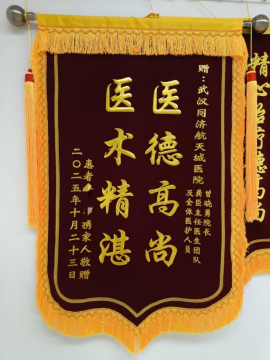 赠：武汉同济航天城医院
曾晓勇院长
龚臣主任医生团队
及全体医护人员
医德高尚
医术精湛
患者 携家人敬赠
二〇二五年十月二十三日
精心治疗德高